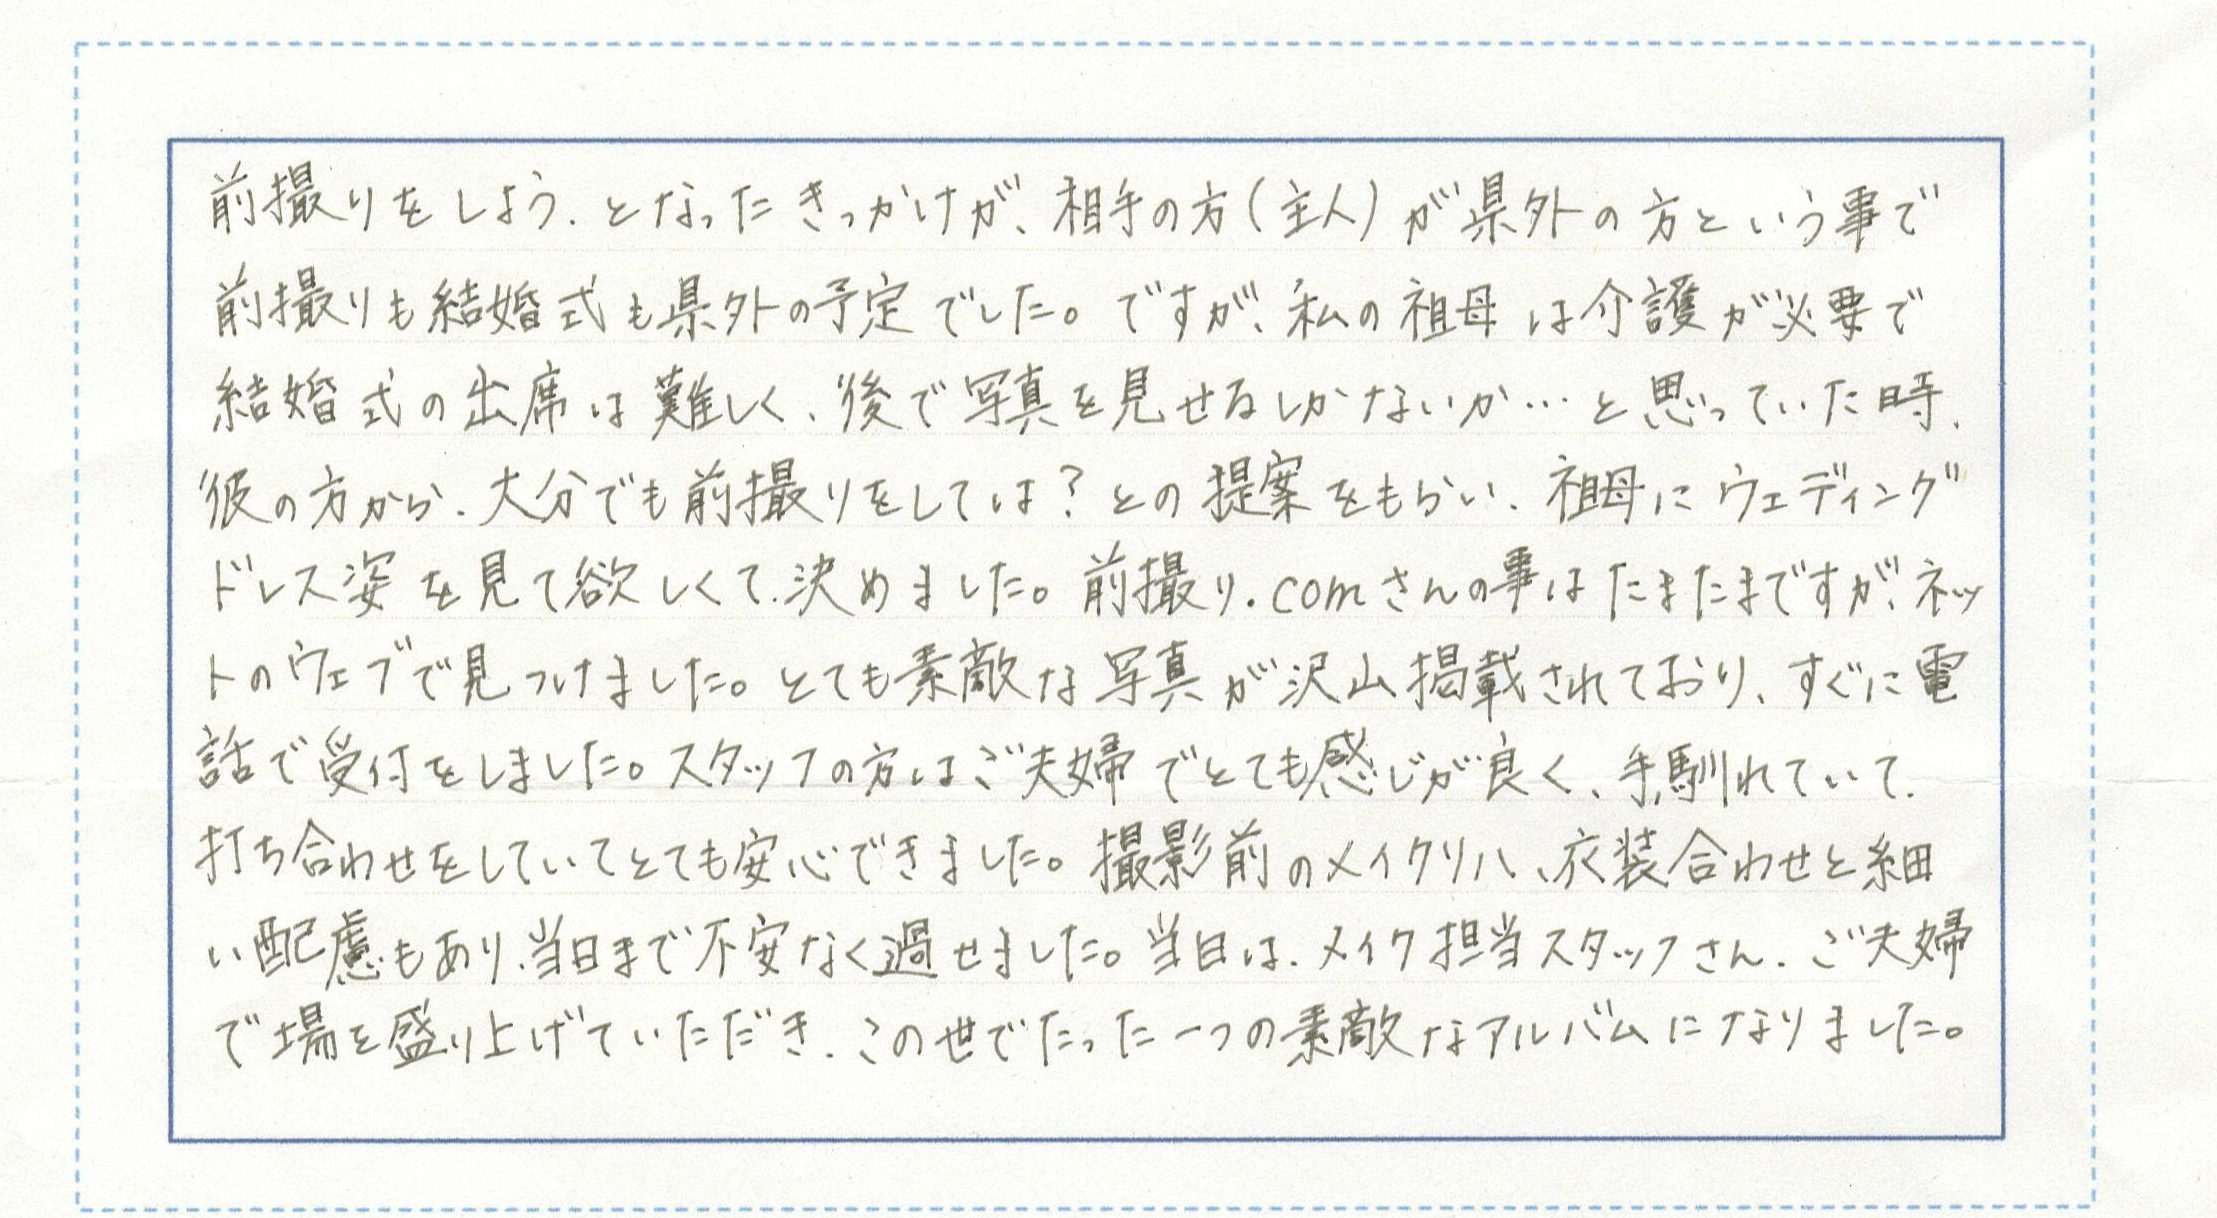 前撮りをしよう、となったきっかけが、相手の方(主人)が県外の方という事で
前撮りも結婚式も県外の予定でした。ですが、私の祖母は介護が必要で
結婚式の出席は難しく、後で写真を見せるしかないか…と思っていた時、
彼の方から、大分でも前撮りをしては?との提案をもらい、祖母にウェディング
ドレス姿を見て欲しくて、決めました。前撮り.comさんの事はたまたまですが、ネッ
トのウェブで見つけました。とても素敵な写真が沢山掲載されており、すぐに電
話で受付をしました。スタッフの方はご夫婦でとても感じが良く、手馴れていて、
打ち合わせをしていてとても安心できました。撮影前のメイクリハ、衣装合わせと細
い配慮もあり、当日まで不安なく過せました。当日は、メイク担当スタッフさん、ご夫婦
で場を盛り上げていただき、この世でたった一つの素敵なアルバムになりました。